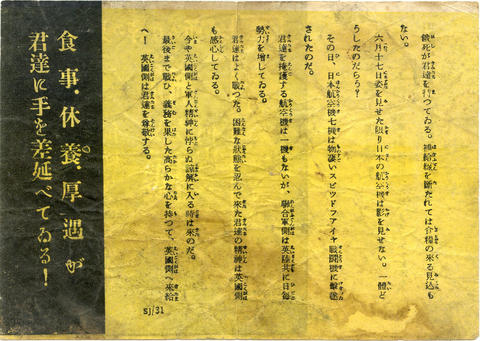 餓死が君達を待つてゐる。補給線を斷たれては糧の來る見込も
ない。
六月十七日姿を見せた限り日本の航空機は影を見せない。一體ど
うしたのだらう?
その日、日本航空機七機は物凄いスピツドフアイヤ戰鬪機に擊墜
されたのだ。
君達を掩護する航空機は一機もないが、聯合軍側は陸共に日每
勢力を增してゐる。
君達はよく戰つた。困難な狀態を忍んで來た君達の精神は英國側
も感心してゐる。
今や英國側と軍人精神に悖らぬ諒解に入る時は來のだ。
最後まで戰ひ、義務を果した高らかな心を持つて、英國側へ來給
へ! 英國側は君達を尊敬する。
SJ/31
食事・休養・厚遇が
君達に手を差延べてゐる!